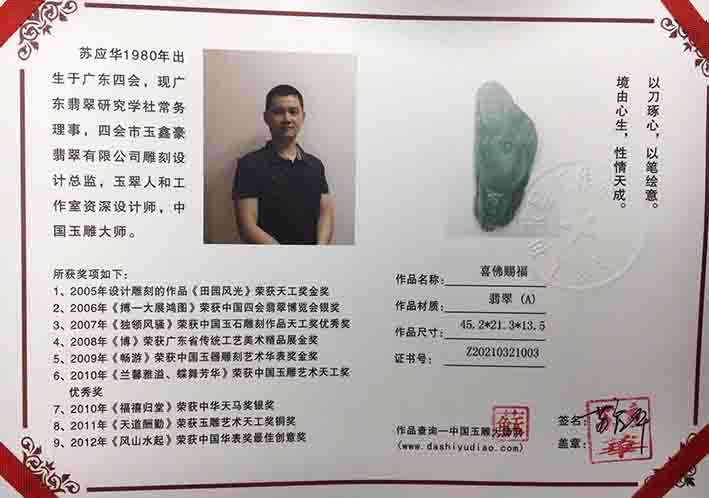 苏应华1980年出
生于广东四会，现广
东翡翠研究学社常务
理事，四会市玉鑫豪
翡翠有限公司雕刻设
计总监，玉翠人和工
作室资深设计师，中
国玉雕大师。
以刀琢心，以笔绘意。
境由心生，性情天成。
所获奖项如下：
1、2005年设计雕刻的作品《田园风光》荣获天工奖金奖
2、2006年《搏一大展鸿图》荣获中国四会翡翠博览会银奖
3、2007年《独领风骚》荣获中国玉石雕刻作品天工奖优秀奖
4、2008年《博》荣获广东省传统工艺美术精品展金奖
5、2009年《畅游》荣获中国玉器雕刻艺术华表奖金奖
6、2010年《兰馨雅溢、蝶舞芳华》荣获中国玉雕艺术天工奖
优秀奖
7、2010年《福禧归堂》荣获中华天马奖银奖
8、2011年《天道酬勤》荣获玉雕艺术天工奖铜奖
9、2012年《风山水起》荣获中国华表奖最佳创意奖
作品名称： 喜佛赐福
作品材质： 翡翠 (A)
作品尺寸： 45.2*21.3*13.5
证书号： Z20210321003
作品查询—中国玉雕大师网
(www.dashiyudiao.com)
签名：
盖章：